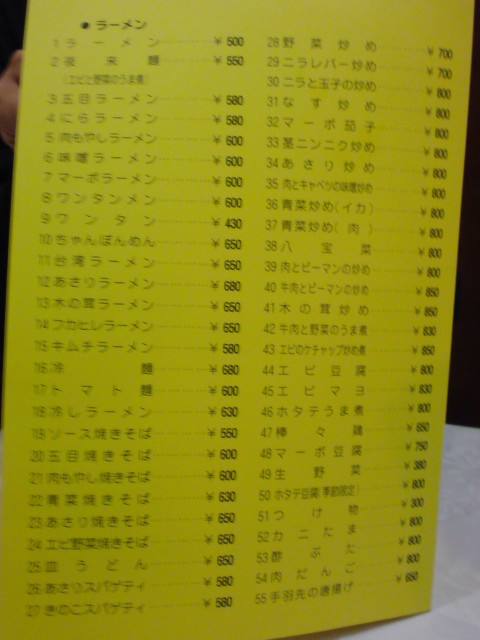 ● ラーメン
1 ラーメン ¥500
2 夜来麺 ¥550
(エビと野菜のうま煮)
3 五目ラーメン ¥580
4 にらラーメン ¥580
5 肉もやしラーメン ¥600
6 味噌ラーメン ¥600
7 マーボラーメン ¥600
8 ワンタンメン ¥600
9 ワンタン ¥430
10 ちゃんぽんめん ¥650
11 台湾ラーメン ¥650
12 あさりラーメン ¥680
13 木の茸ラーメン ¥650
14 フカヒレラーメン ¥650
15 キムチラーメン ¥580
16 冷麺 ¥680
17 トマト麺 ¥600
18 冷しラーメン ¥630
19 ソース焼きそば ¥550
20 五目焼きそば ¥600
21 肉もやし焼きそば ¥600
22 青菜焼きそば ¥630
23 あさり焼きそば ¥650
24 エビ野菜焼きそば ¥650
25 皿うどん ¥650
26 あさりスパゲティ ¥580
27 きのこスパゲティ ¥580
28 野菜炒め ¥700
29 ニラレバー炒め ¥700
30 ニラと玉子の炒め ¥800
31 なす炒め ¥800
32 マーボ茄子 ¥800
33 茎ニンニク炒め ¥800
34 あさり炒め ¥800
35 肉とキャベツの味噌炒め ¥800
36 青菜炒め(イカ) ¥800
37 青菜炒め(肉) ¥800
38 八宝菜 ¥800
39 肉とピーマンの炒め ¥800
40 牛肉とピーマンの炒め ¥850
41 木の茸炒め ¥850
42 牛肉と野菜のうま煮 ¥830
43 エビのケチャップ炒め煮 ¥850
44 エビ豆腐 ¥800
45 エビマヨ ¥830
46 ホタテうま煮 ¥800
47 棒々鶏 ¥650
48 マーボ豆腐 ¥750
49 生野菜 ¥380
50 ホタテ豆腐(季節限定) ¥800
51 つけ物 ¥300
52 カニたま ¥800
53 酢ぶた ¥800
54 肉だんご ¥800
55 手羽先の唐揚げ ¥650